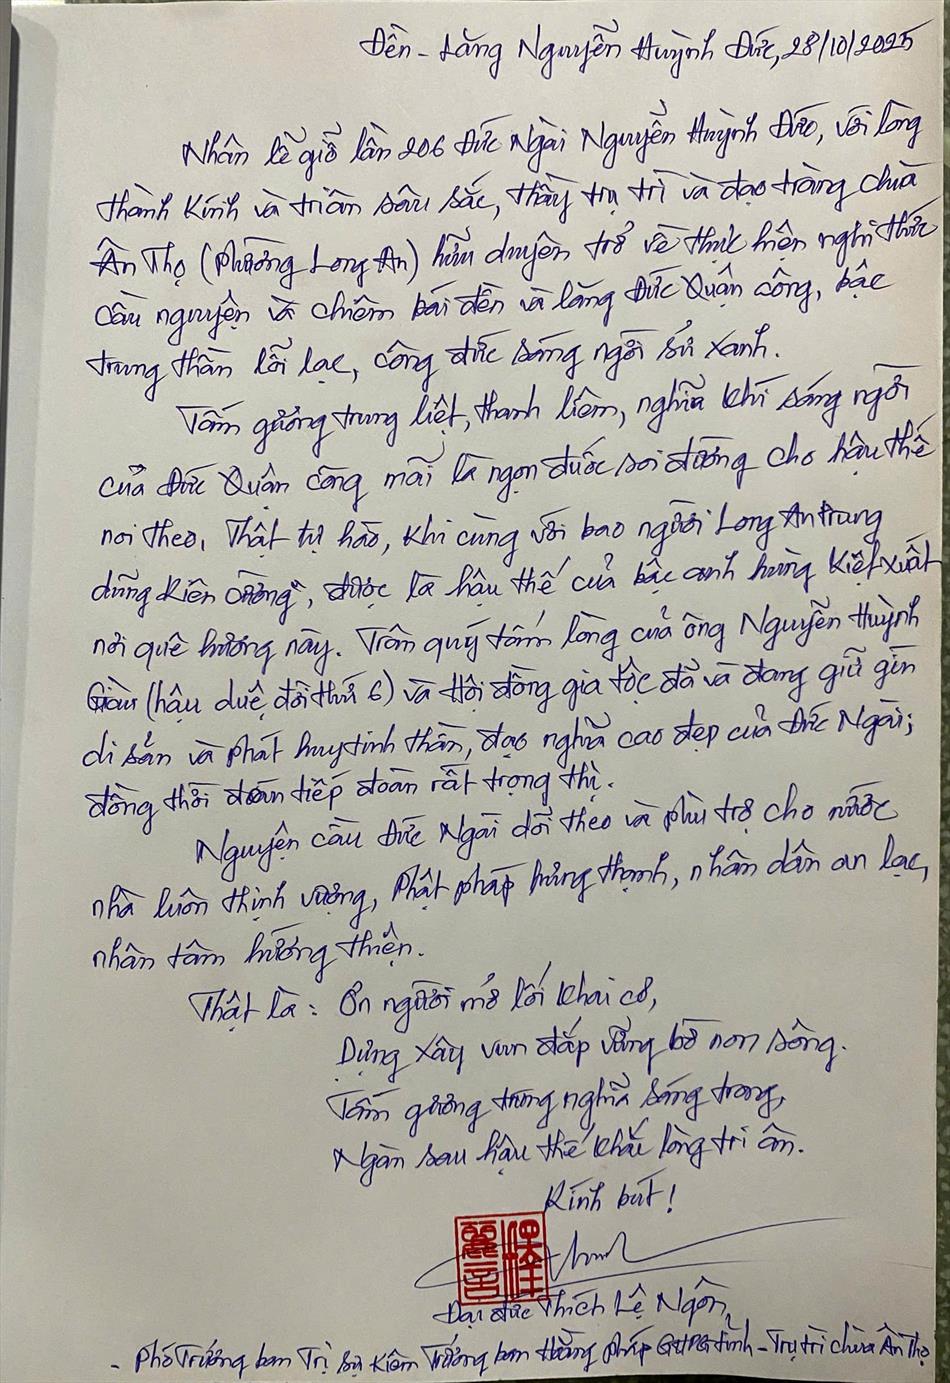 Đền - Lăng Nguyễn Huỳnh Đức, 28/10/2025
Nhân lễ giỗ lần 206 Đức Ngài Nguyễn Huỳnh Đức, với lòng
thành kính và tri ân sâu sắc, thầy trụ trì và đạo tràng chùa
Ân Thọ (phường Long An) hữu duyên trở về thực hiện nghi thức
cầu nguyện và chiêm bái đền và lăng Đức Quận công, bậc
trung thần lỗi lạc, công đức sáng ngời sử xanh.
Tấm gương trung liệt, thanh liêm, nghĩa khí sáng ngời
của Đức Quận công mãi là ngọn đuốc soi đường cho hậu thế
noi theo. Thật tự hào, khi cùng với bao người Long An trung
dũng kiên cường, được là hậu thế của bậc anh hùng kiệt xuất
nơi quê hương này. Trân quý tấm lòng của ông Nguyễn Huỳnh
(hậu duệ đời thứ 6) và Hội đồng gia tộc đã và đang giữ gìn
di sản và phát huy tinh thần, đạo nghĩa cao đẹp của Đức Ngài;
đồng thời đón tiếp đoàn rất trọng thị.
Nguyện cầu Đức Ngài dõi theo và phù trợ cho nước
nhà luôn thịnh vượng, Phật pháp hưng thạnh, nhân dân an lạc,
nhân tâm hướng thiện.
Thật là: Ơn người mở lối khai cơ,
Dựng xây vun đắp vững bờ non sông.
Tấm gương trung nghĩa sáng trong,
Ngàn sau hậu thế khắc lòng tri ân.
Kính bút!
Đại đức Thích Lệ Ngôn,
- Phó Trưởng ban Trị sự kiêm Trưởng ban Hoằng pháp GHPG tỉnh - Trụ trì chùa Ân Thọ